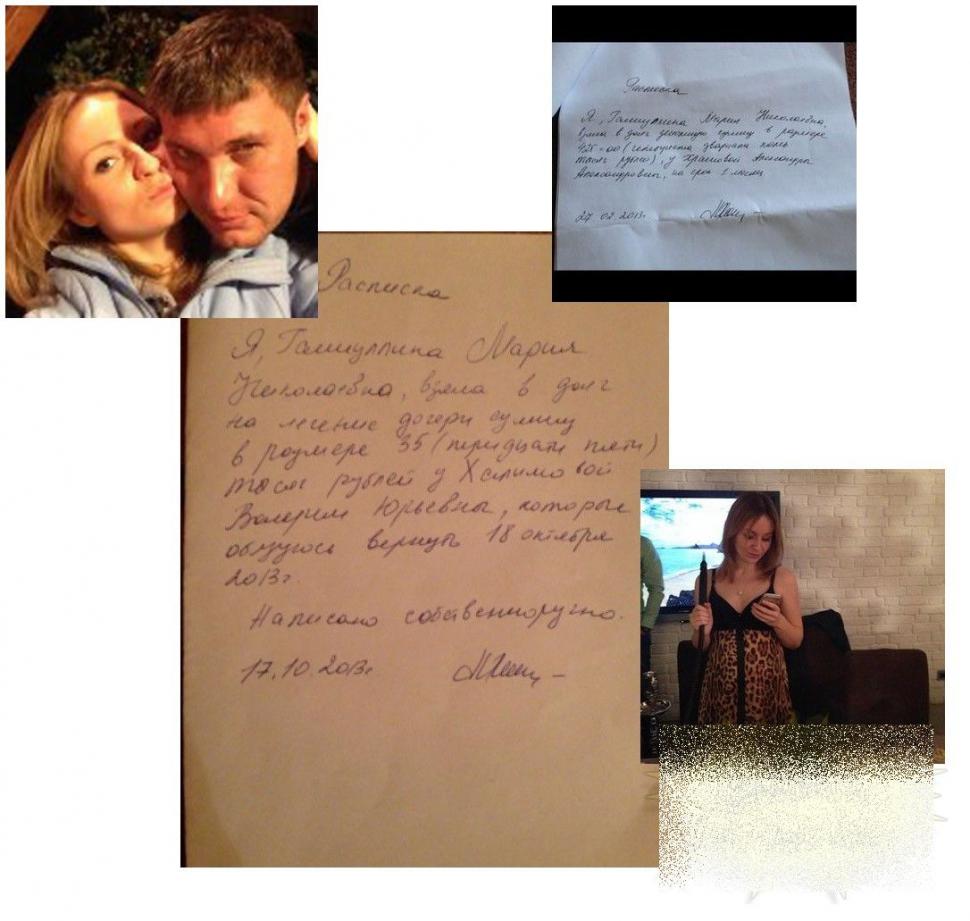 Расписка
Я, Галиуллина Мария Николаевна,
взяла в долг денежную сумму в размере
425=00 (четыреста двадцать пять
тысяч рублей), у Храмовой Александры
Александровны, на срок 1 месяц
27 02 2013г
Расписка
Я, Галиуллина Мария
Николаевна, взяла в долг
на лечение дочери сумму
в размере 35 (тридцати пяти)
тысяч рублей у Халимовой
Валерии Юрьевны, которые
обязуюсь вернуть 18 октября
2013г.
Написано собственноручно.
17.10.2013г